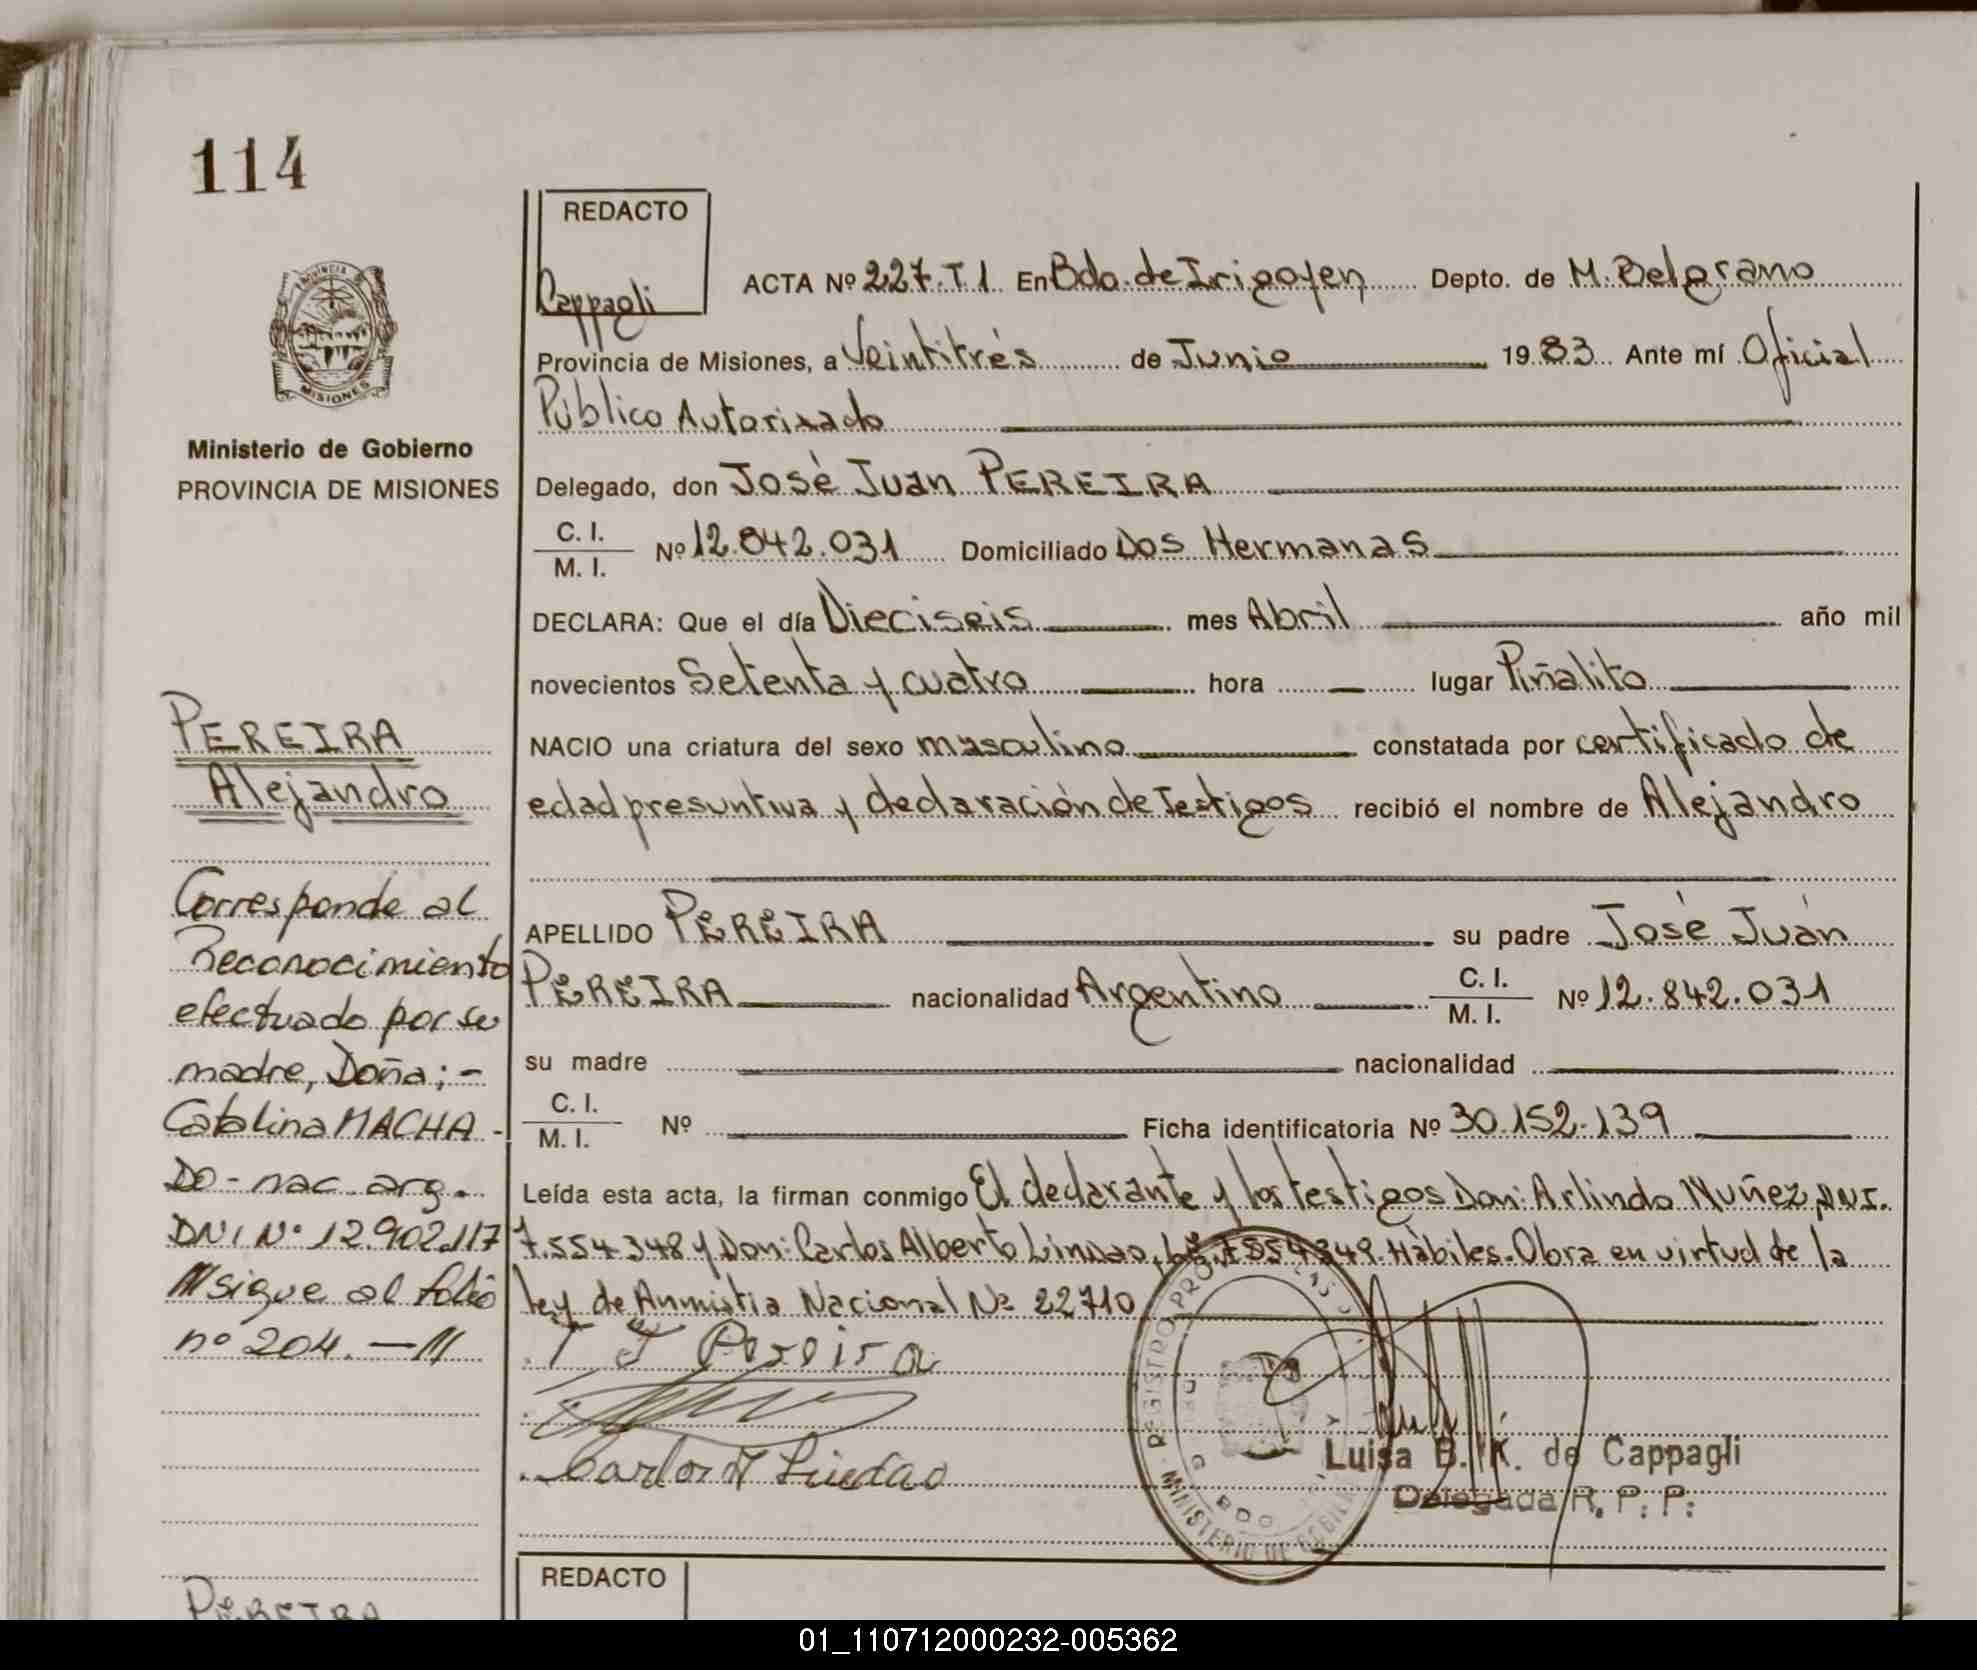 114
REDACTO
Cappagli
ACTA Nº 227. T 1 En Bdo. de Irigoyen Depto. de M. Belgrano
Provincia de Misiones, a Veintitrés de Junio 19 83 Ante mí Oficial
Público Autorizado
Delegado, don José Juan PEREIRA
C. I.
M. I.
Nº 12.842.031 Domiciliado Dos Hermanas
DECLARA: Que el día Dieciseis mes Abril año mil
novecientos Setenta y cuatro hora — lugar Piñalito
NACIO una criatura del sexo masculino constatada por certificado de
edad presuntiva y declaración de Testigos recibió el nombre de Alejandro
APELLIDO PEREIRA su padre José Juan
PEREIRA nacionalidad Argentino C. I.
M. I.
Nº 12.842.031
su madre nacionalidad
C. I.
M. I.
Nº Ficha identificatoria Nº 30.152.139
Leída esta acta, la firman conmigo El declarante y los testigos Don: Arlindo Nuñez, DNI.
7.554.348 y Don: Carlos Alberto Hábiles. Obra en virtud de la
ley de Anmistia Nacional Nº 22710
J J Pereira
Carlos A
Luisa B. K. de Cappagli
Delegada R. P. P.
REGISTRO PROV
MINISTERIO DE GOBIERNO
BDO
PROVINCIA
MISIONES
Ministerio de Gobierno
PROVINCIA DE MISIONES
PEREIRA
Alejandro
Corresponde al
Reconocimiento
efectuado por su
madre, Doña; -
Catalina MACHA -
DO - nac. arg.
DNI Nº 12.902.117
/// sigue al folio
nº 204. — ///
PEREIRA
REDACTO
01_110712000232-005362